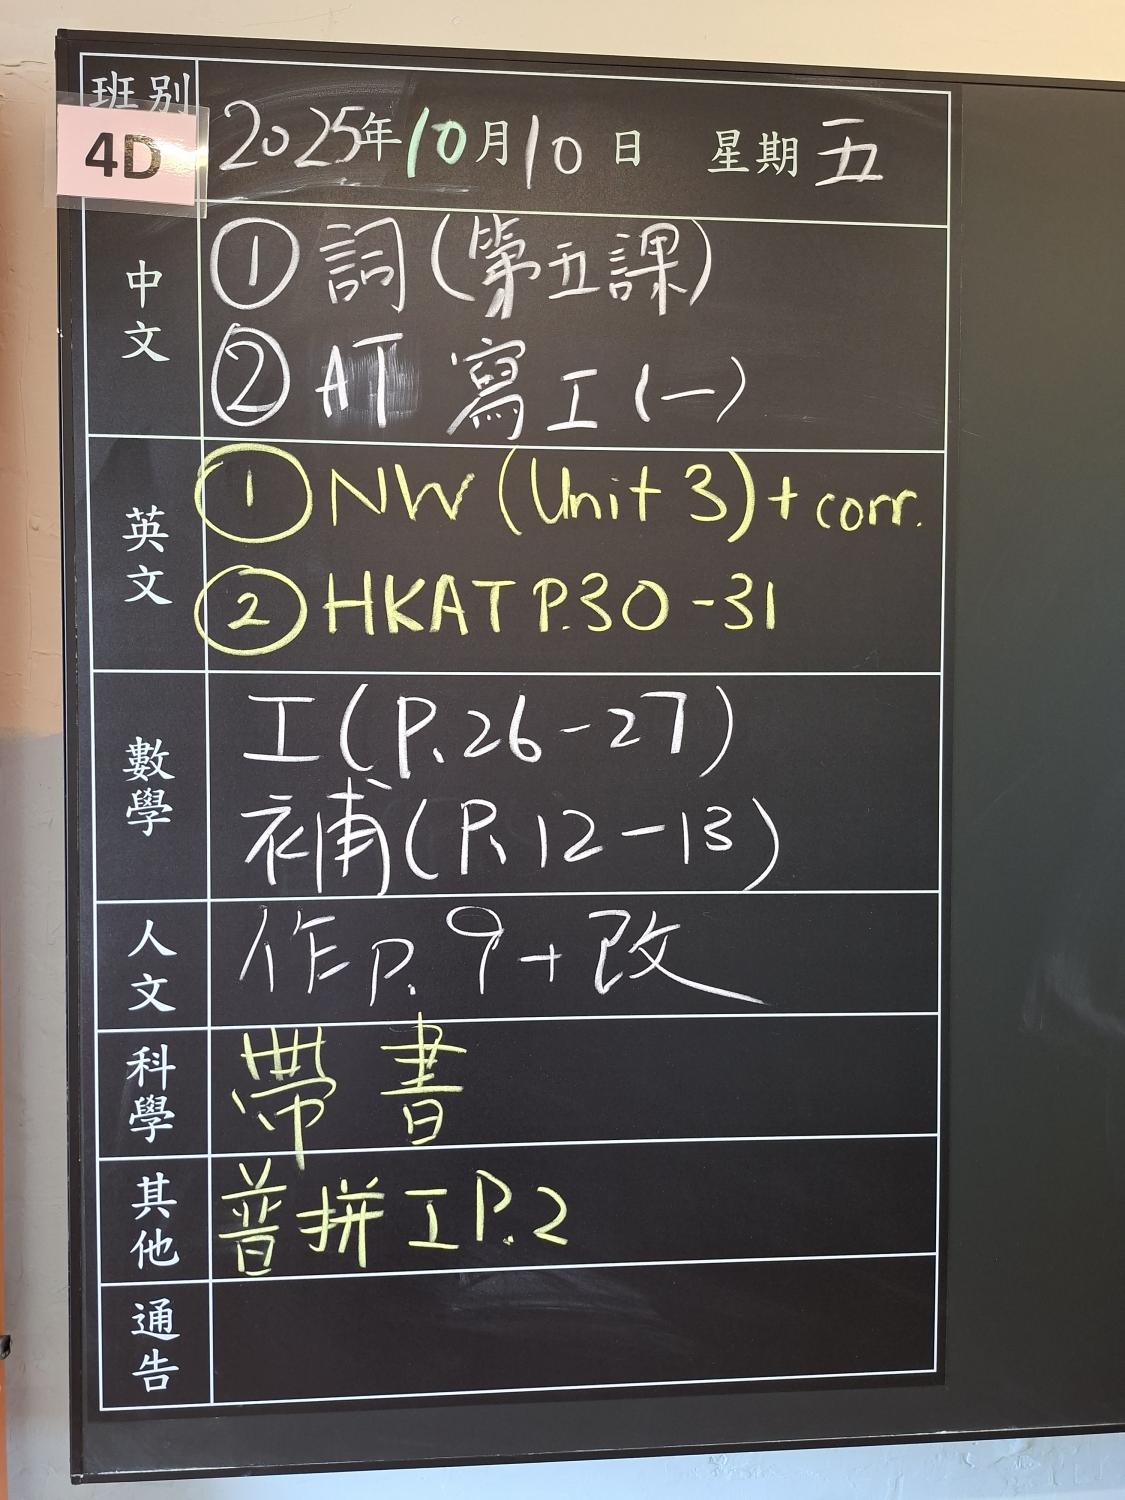 班別
4D
2025年10月10日 星期五
中文
① 詞(第五課)
② AT 寫工(一)
英文
① NW (Unit 3) + corr.
② HKAT P.30-31
數學
工(P.26-27)
補(P.12-13)
人文
作P.9+改
科學
帶書
其他
普拼工P.2
通告